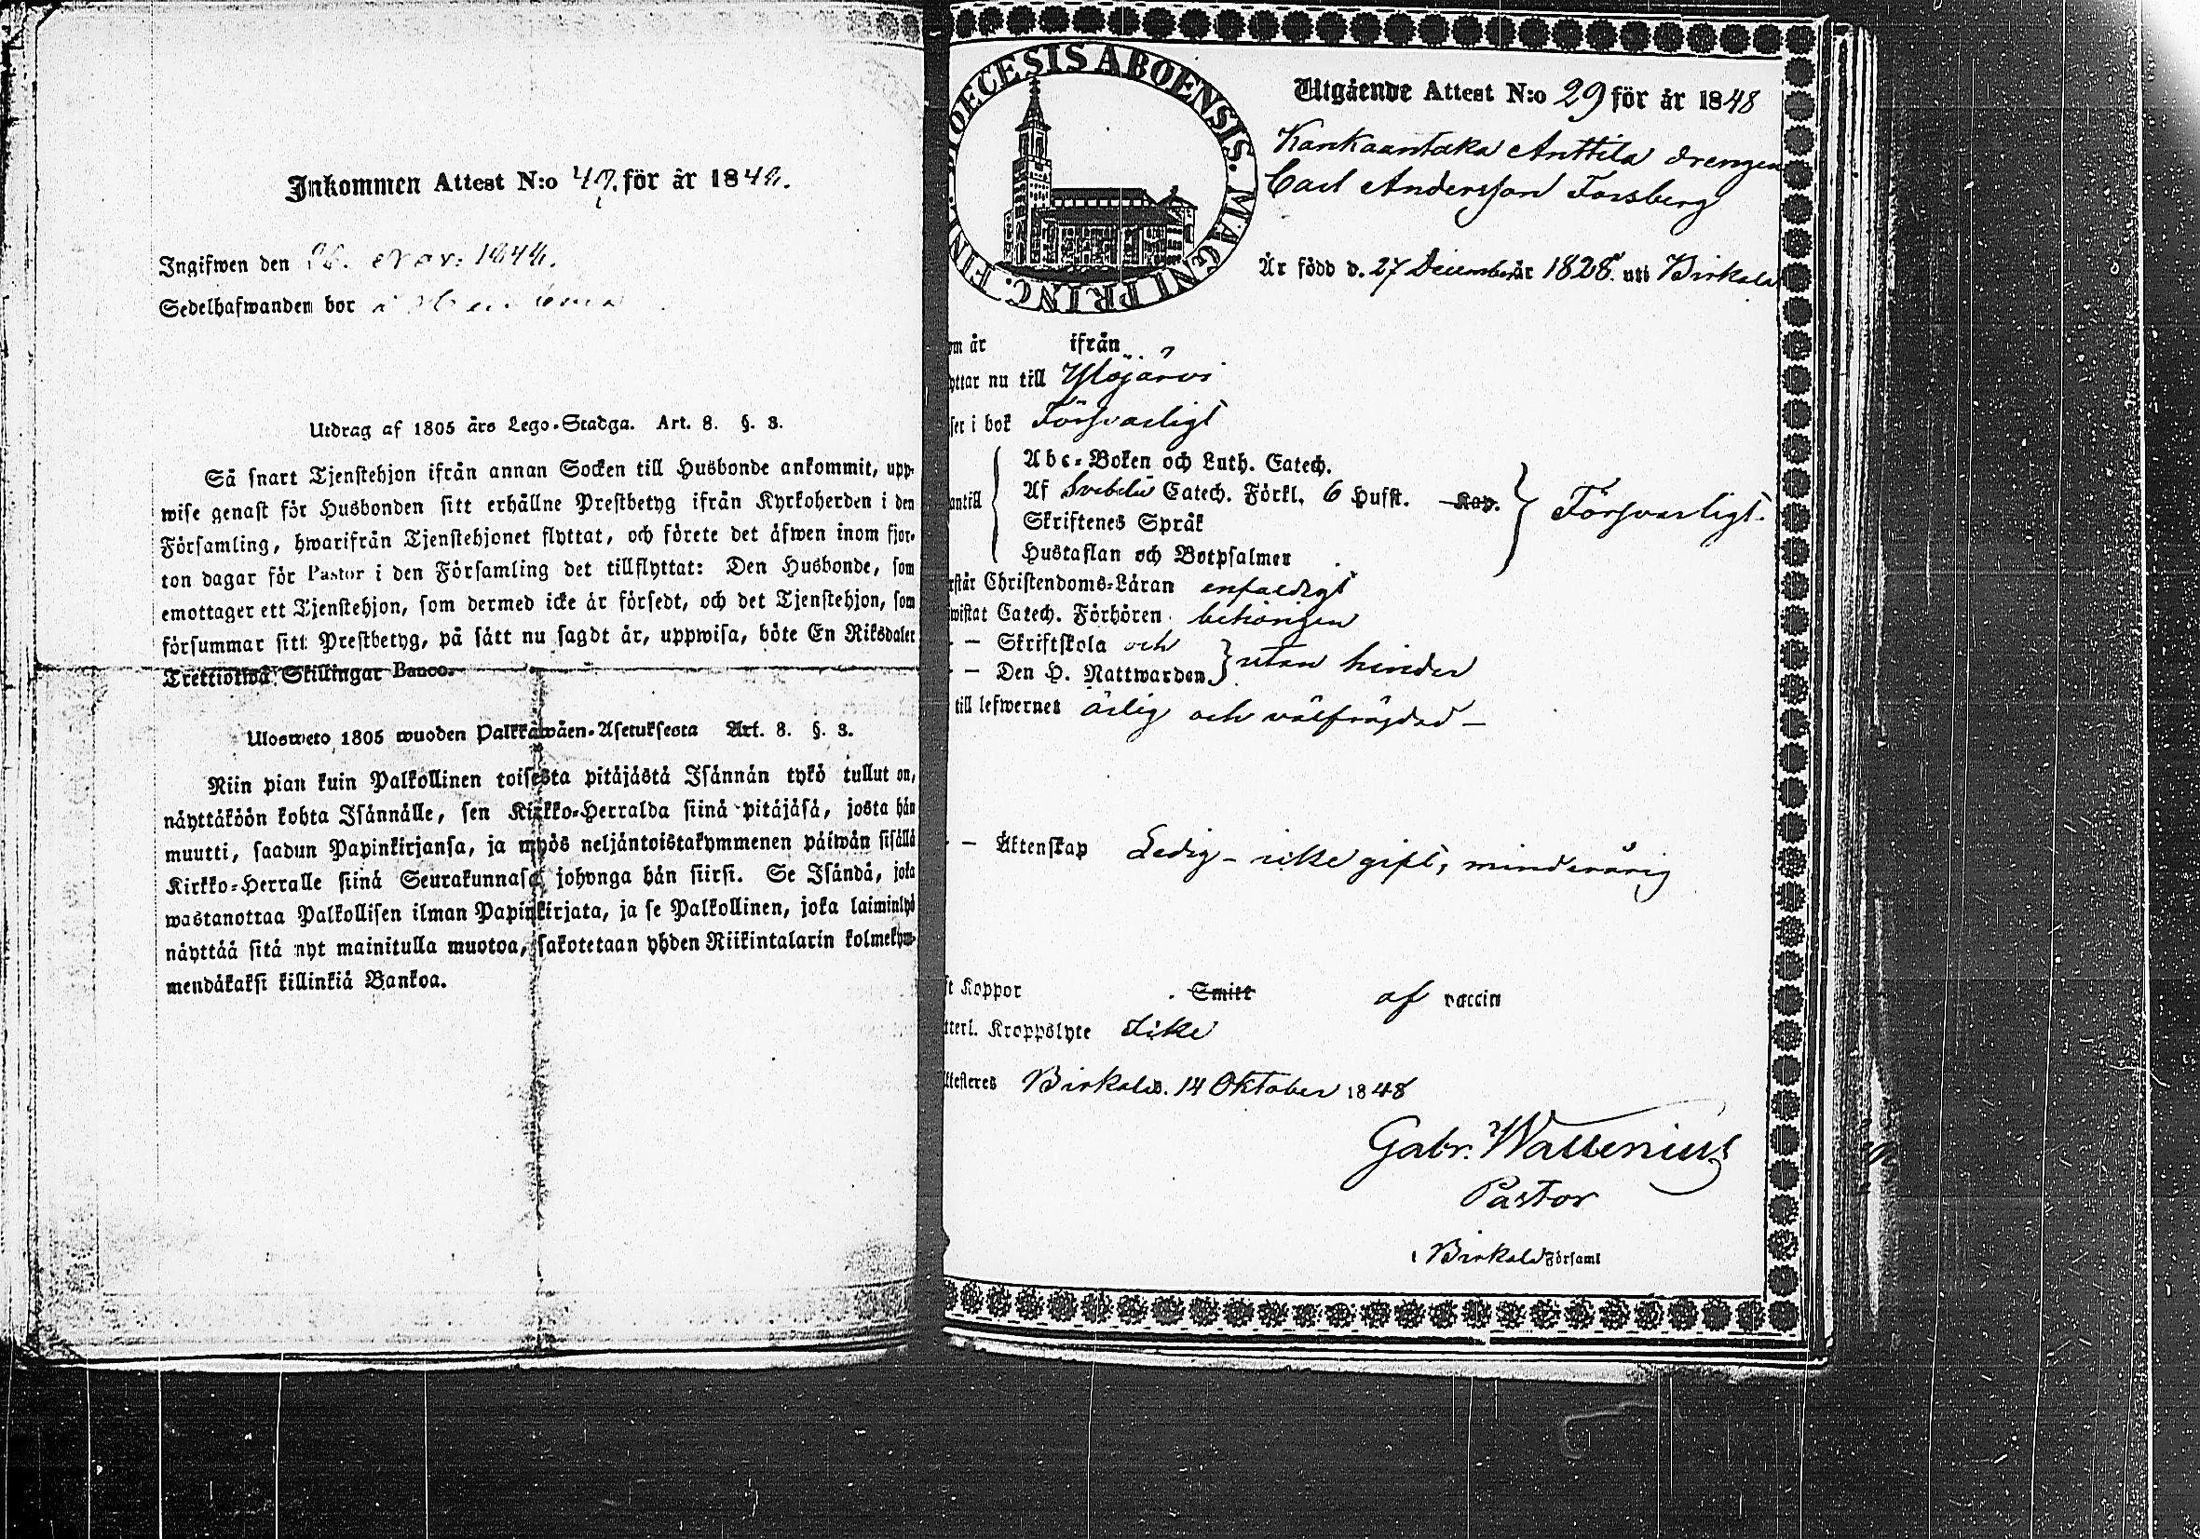 Inkommen Attest N:o 47. för år 184
Ingifwen den Nov: 184
Sedelhafwanden bor i
Utdrag af 1805 års Lego-Stadga. Art. 8. §. 3.
Så snart Tjenstehjon ifrån annan Socken till Husbonde ankommit, upp-
wise genast för Husbonden sitt erhållne Prestbetyg ifrån Kyrkoherden i den
Församling, hwarifrån Tjenstehjonet flyttat, och förete det äfwen inom fjor-
ton dagar för Pastor i den Församling det tillflyttat: Den Husbonde, som
emottager ett Tjenstehjon, som dermed icke är försedt, och det Tjenstehjon, som
försummar sitt Prestbetyg, på sätt nu sagdt är, uppwisa, böte En Riksdaler
Trettiotwå Skillingar Banco.
Ulosweto 1805 wuoden Palkkawäen-Asetuksesta Art. 8. §. 3.
Niin pian kuin Palkollinen toisesta pitäjästä Isännän tykö tullut on,
näyttäköön kohta Isännälle, sen Kirkko-Herralda siinä pitäjäsä, josta hän
muutti, saadun Papinkirjansa, ja myös neljäntoistakymmenen päiwän sisällä
Kirkko-Herralle siinä Seurakunnasa, johonga hän siirsi. Se Isändä, joka
wastanottaa Palkollisen ilman Papinkirjata, ja se Palkollinen, joka laiminlyö
näyttää sitä nyt mainitulla muotoa, sakotetaan yhden Riikintalarin kolmekym-
mendäkaksi killinkiä Bankoa.
DIOECESIS ABOENSIS. MAGNI PRINC. FIN
Utgående Attest N:o 29 för år 1848
Kankaantaka Anttila drengen
Carl Andersson Forsberg
Är född d. 27 December år 1828. uti Birkala
om år ifrån
yttar nu till Ylöjärvi
ser i bok Försvarligt
antill
Abc-Boken och Luth. Catech.
Af Svebelii Catech. Förkl. 6 Hufst. Kap.
Skriftenes Språk
Hustaflan och Botpsalmer
Försvarligt.
rstår Christendoms-Läran enfaldigt
wistat Catech. Förhören behörigen
- - Skriftskola och
- - Den H. Nattwarden. utan hinder
till lefwernet ärlig och välfrägdad -
- - Äktenskap Ledig - icke gift, minderårig
ft Koppor Smitt af vaccin
tterl. Kroppslyte Icke
ttesteres Birkala d. 14 Oktober 1848
Gabr. Wallenius
Pastor
i Birkala Församl